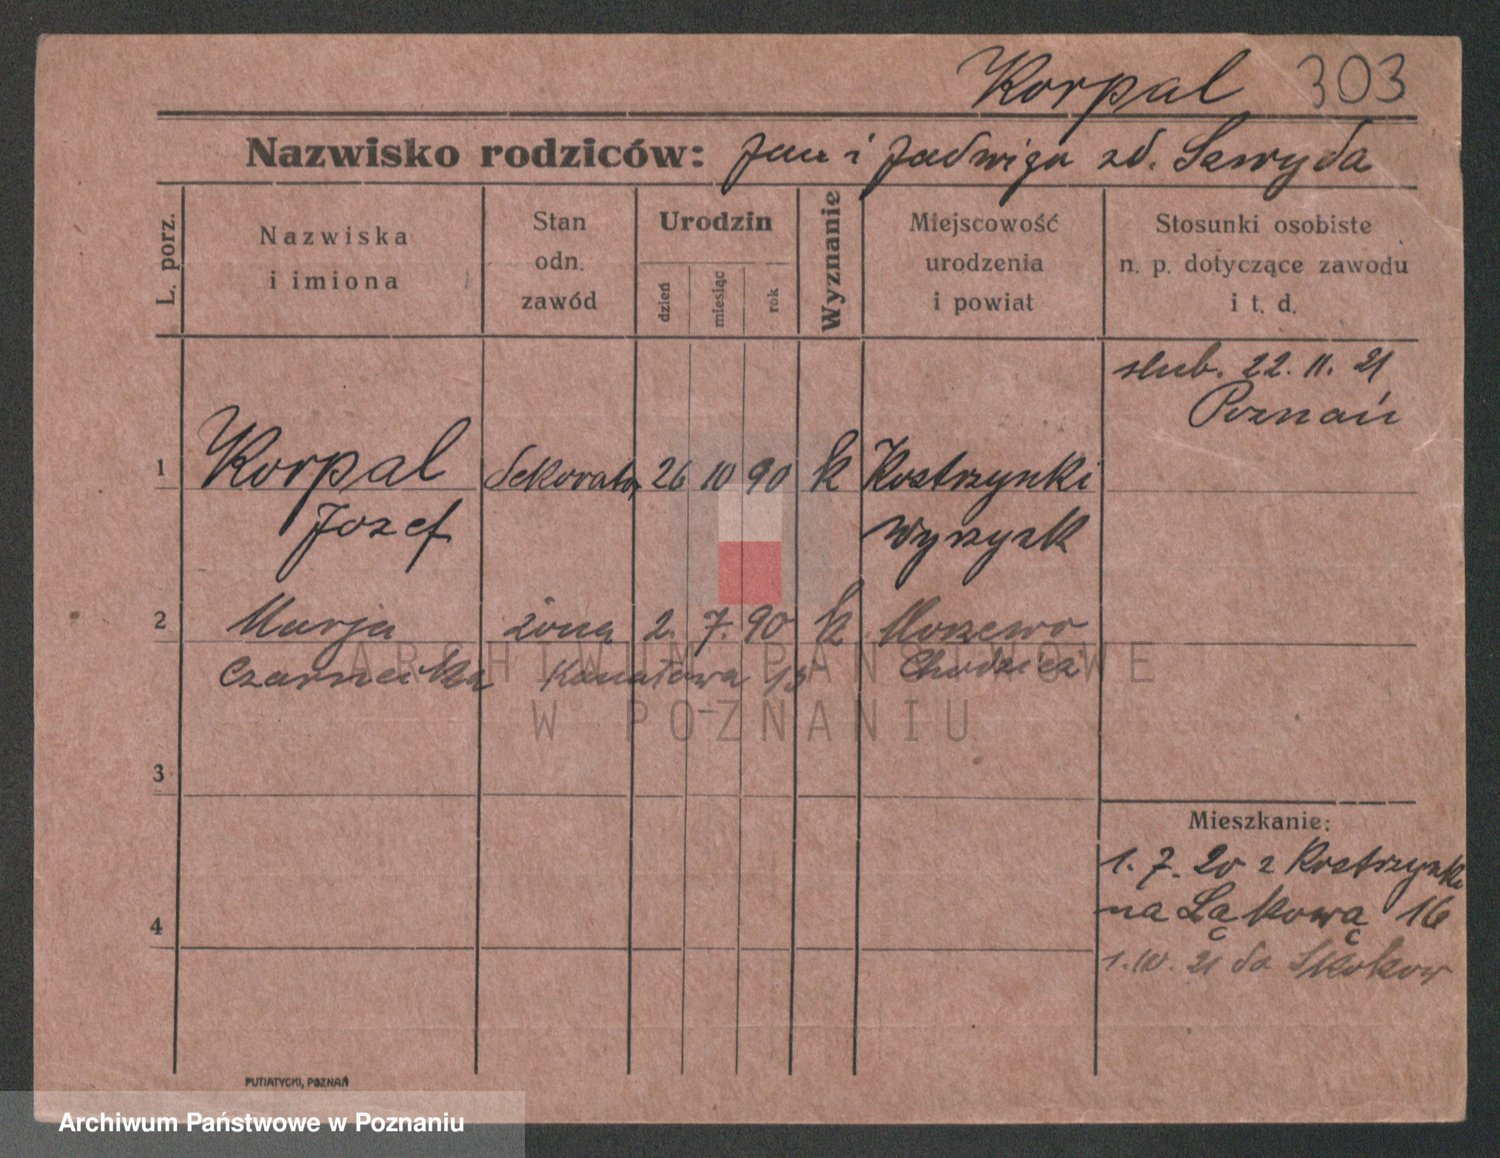 Korpal 303
Nazwisko rodziców: Jan i Jadwiga zd. Szwyda
L. porz.
Nazwiska
i imiona
Stan
odn.
zawód
Urodzin
dzień
miesiąc
rok
Wyznanie
Miejscowość
urodzenia
i powiat
Stosunki osobiste
n. p. dotyczące zawodu
i t. d.
ślub. 22. 11. 21
Poznań
1 Korpal dekorator 26 10 90 k Kostrzynki
Jozef Wyrzysk
2 Marja żona 2. 7. 90 k Morzewo
Czarnecka Kanałowa 13 Chodzież
3
4
Mieszkanie:
1. 7. 20 z Kostrzynki
na Łąkową 16
1. IV. 21 do Skokow
PUTIATYCKI, POZNAŃ
ARCHIWUM PAŃSTWOWE
W POZNANIU
Archiwum Państwowe w Poznaniu